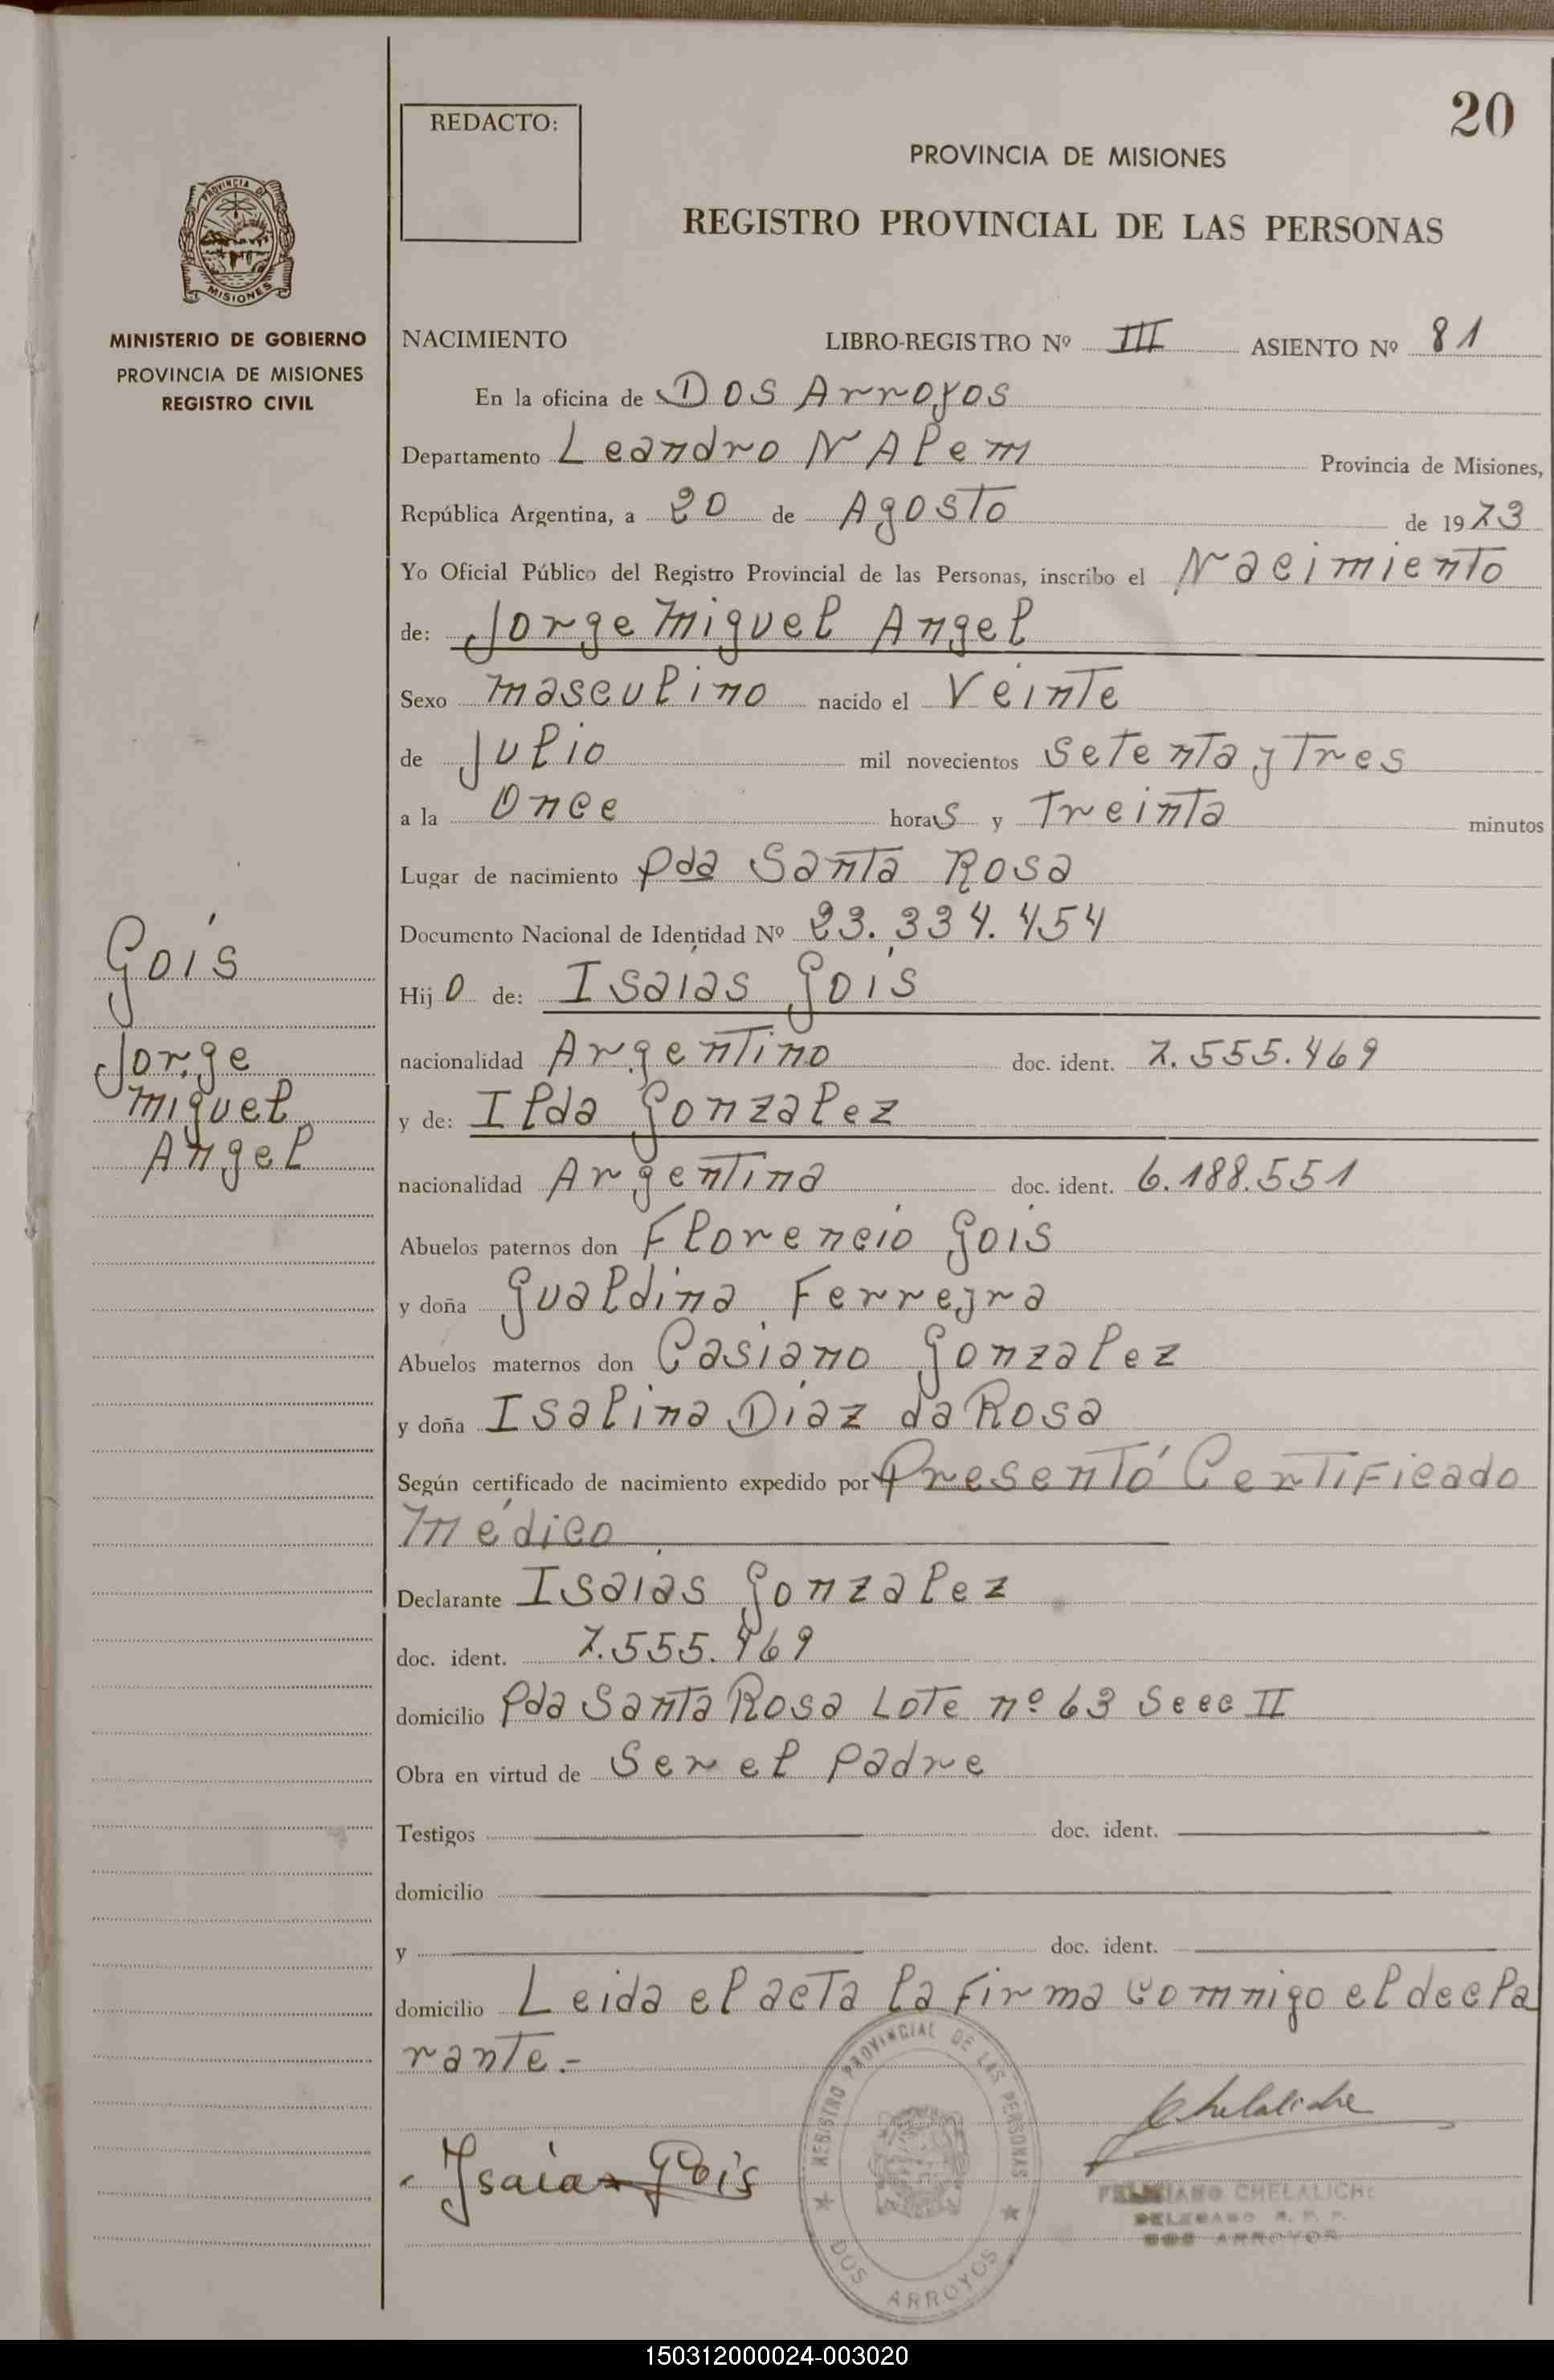 20
REDACTO:
PROVINCIA DE MISIONES
REGISTRO PROVINCIAL DE LAS PERSONAS
PROVINCIA DE
MISIONES
MINISTERIO DE GOBIERNO
PROVINCIA DE MISIONES
REGISTRO CIVIL
NACIMIENTO LIBRO-REGISTRO Nº III ASIENTO Nº 81
En la oficina de Dos Arroyos
Departamento Leandro N Alem Provincia de Misiones,
República Argentina, a 20 de Agosto de 1973
Yo Oficial Público del Registro Provincial de las Personas, inscribo el Nacimiento
de: Jorge Miguel Angel
Sexo masculino nacido el Veinte
de Julio mil novecientos setenta y Tres
a la Once horas y Treinta minutos
Lugar de nacimiento Pda Santa Rosa
Documento Nacional de Identidad Nº 23.334.454
Hijo de: Isaias Gois
nacionalidad Argentino doc. ident. 7.555.469
y de: Ilda Gonzalez
nacionalidad Argentina doc. ident. 6.188.551
Abuelos paternos don Florencio Gois
y doña Gualdina Ferreyra
Abuelos maternos don Casiano Gonzalez
y doña Isalina Diaz da Rosa
Según certificado de nacimiento expedido por Presentó Certificado
Médico
Declarante Isaias Gonzalez
doc. ident. 7.555.469
domicilio Pda Santa Rosa Lote nº 63 Secc II
Obra en virtud de Ser el Padre
Testigos doc. ident.
domicilio
y doc. ident.
domicilio Leida el acta la firma comnigo el decla
rante.-
Gois
Jorge
Miguel
Angel
Isaias Gois
Chelaliche
REGISTRO PROVINCIAL DE LAS PERSONAS
DOS ARROYOS
FELICIANO CHELALICHE
DELEGADO R. P. P.
DOS ARROYOS
150312000024-003020